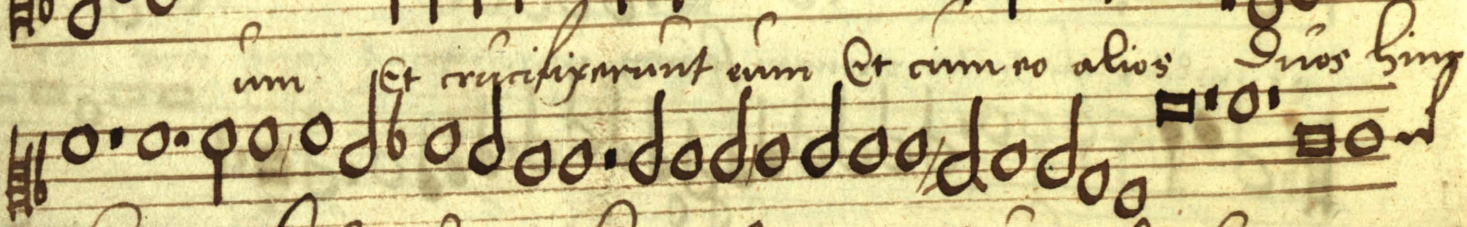 um Et crucifixerunt eum Et cum eo alios Duos hinc